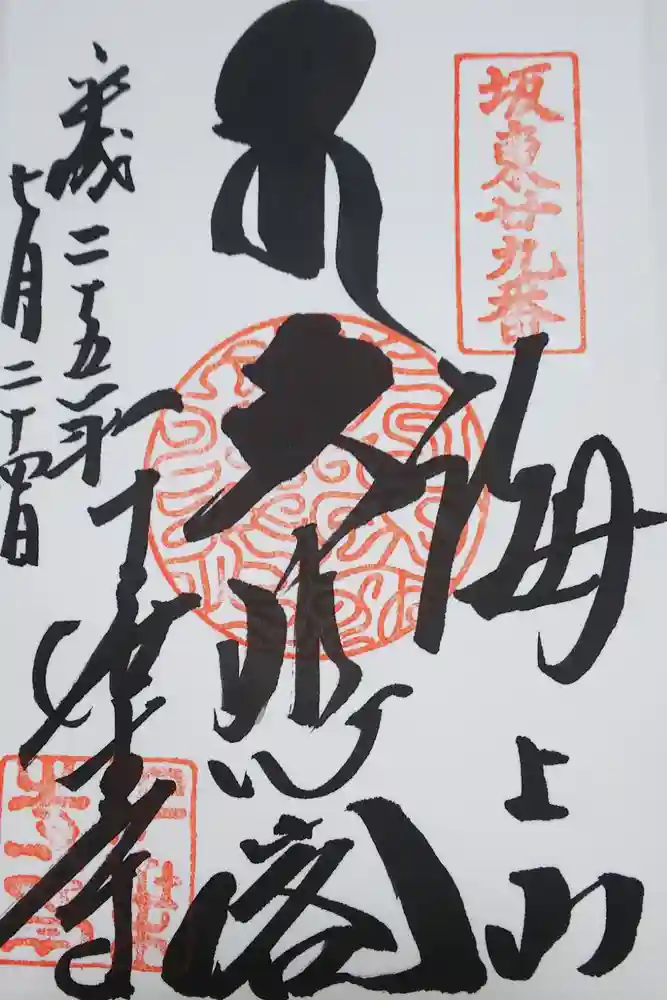 坂東廿九番
海上山
大悲閣
千葉寺
平成二十五年
七月二十四日